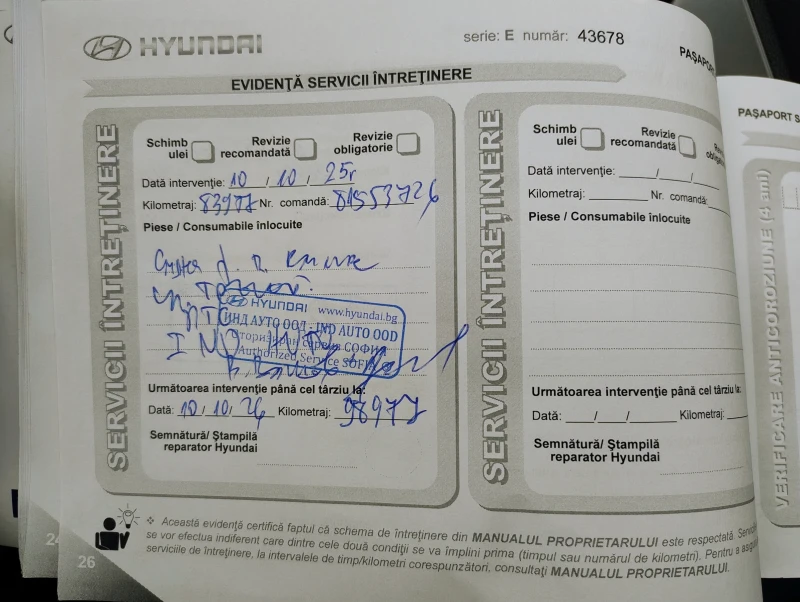 HYUNDAI
serie: E număr: 43678
PAȘAPOR
EVIDENȚĂ SERVICII ÎNTREȚINERE
SERVICII ÎNTREȚINERE
Schimb ulei
Revizie recomandată
Revizie obligatorie
Dată intervenție: 10 , 10 , 25г
Kilometraj: 83977 Nr. comandă: 81553726
Piese / Consumabile înlocuite
HYUNDAI www.hyundai.bg
ИНД АУТО ООД - IND AUTO OOD
оторизиран сервиз СОФИЯ
Authorized Service SOFIA
Următoarea intervenție până cel târziu la:
Dată: 10, 10, 26 Kilometraj: 98977
Semnătură/ Ștampilă
reparator Hyundai
SERVICII ÎNTREȚINERE
Schimb ulei
Revizie recomandată
obligatorie
Dată intervenție: ____/____/____
Kilometraj: ________ Nr. comandă:
Piese / Consumabile înlocuite
Următoarea intervenție până cel târziu la:
Dată: ____/____/____ Kilometraj:
Semnătură/ Ștampilă
reparator Hyundai
PAȘAPORT S
VERIFICARE ANTICOROZIUNE (4 ani)
❖ Această evidență certifică faptul că schema de întreținere din MANUALUL PROPRIETARULUI este respectată.
se vor efectua indiferent care dintre cele două condiții se va împlini prima (timpul sau numărul de kilometri). Pentru a
serviciile de întreținere, la intervalele de timp/kilometri corespunzători, consultați MANUALUL PROPRIETARULUI.
24
26